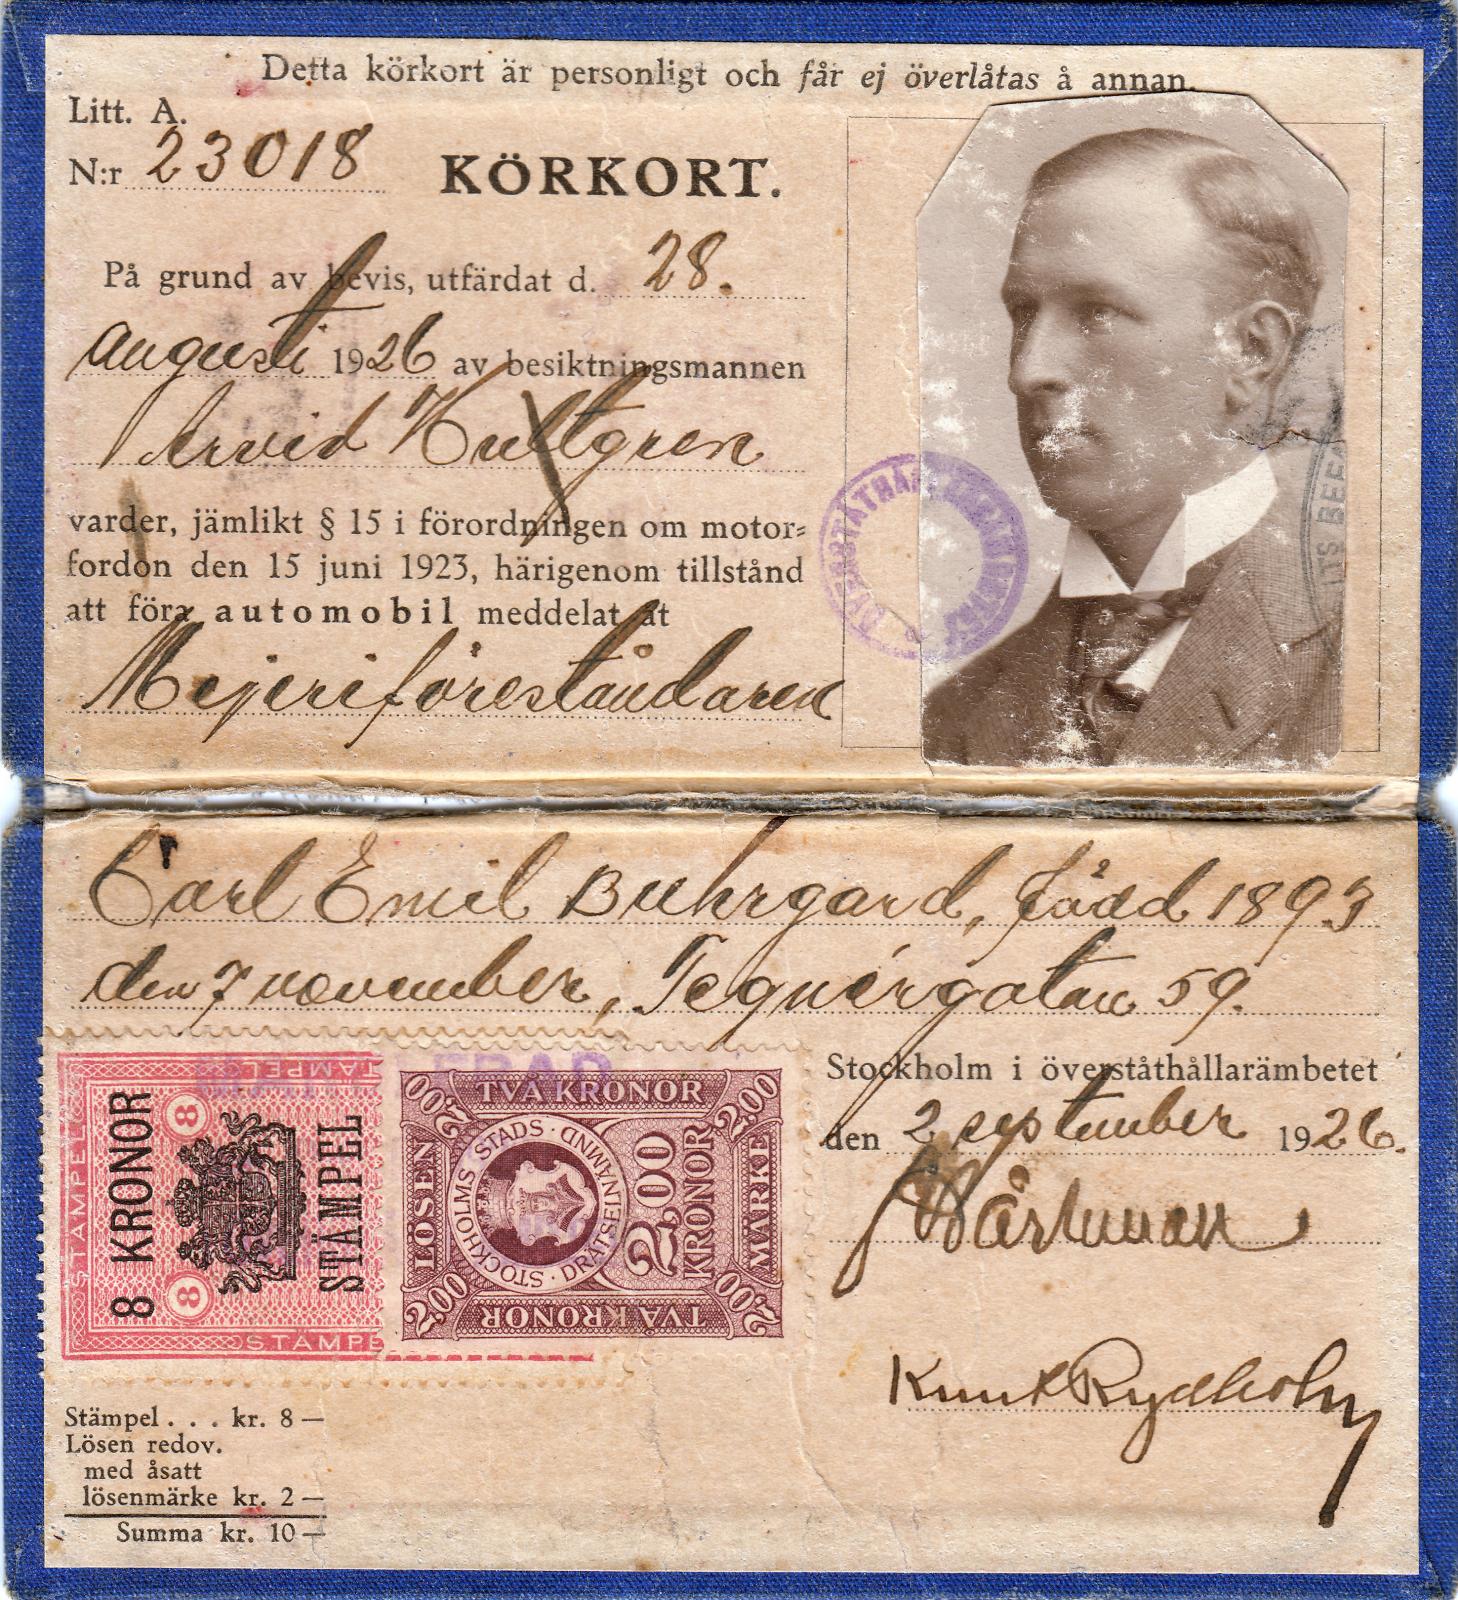 Detta körkort är personligt och får ej överlåtas å annan.
Litt. A.
N:r 23018
KÖRKORT.
På grund av bevis, utfärdat d. 28.
augusti 1926 av besiktningsmannen
Arvid Hultgren
varder, jämlikt § 15 i förordningen om motor=
fordon den 15 juni 1923, härigenom tillstånd
att föra automobil meddelat åt
Mejeriföreståndaren
Carl Emil Buhrgard, född 1893
den 7 november, Tegnérgatan 59.
Stockholm i överståthållarämbetet
den 2 september 1926.
Knut Rydholm
8 KRONOR
STÄMPEL
STÄMPEL
8
8
TVÅ KRONOR
LÖSEN
MÄRKE
STOCKHOLMS STADS · DRÄTSELNÄMND ·
2,00
KRONOR
2,00
2,00
2,00
2,00
TVÅ KRONOR
Stämpel . . . kr. 8 —
Lösen redov.
med åsatt
lösenmärke kr. 2 —
Summa kr. 10 —